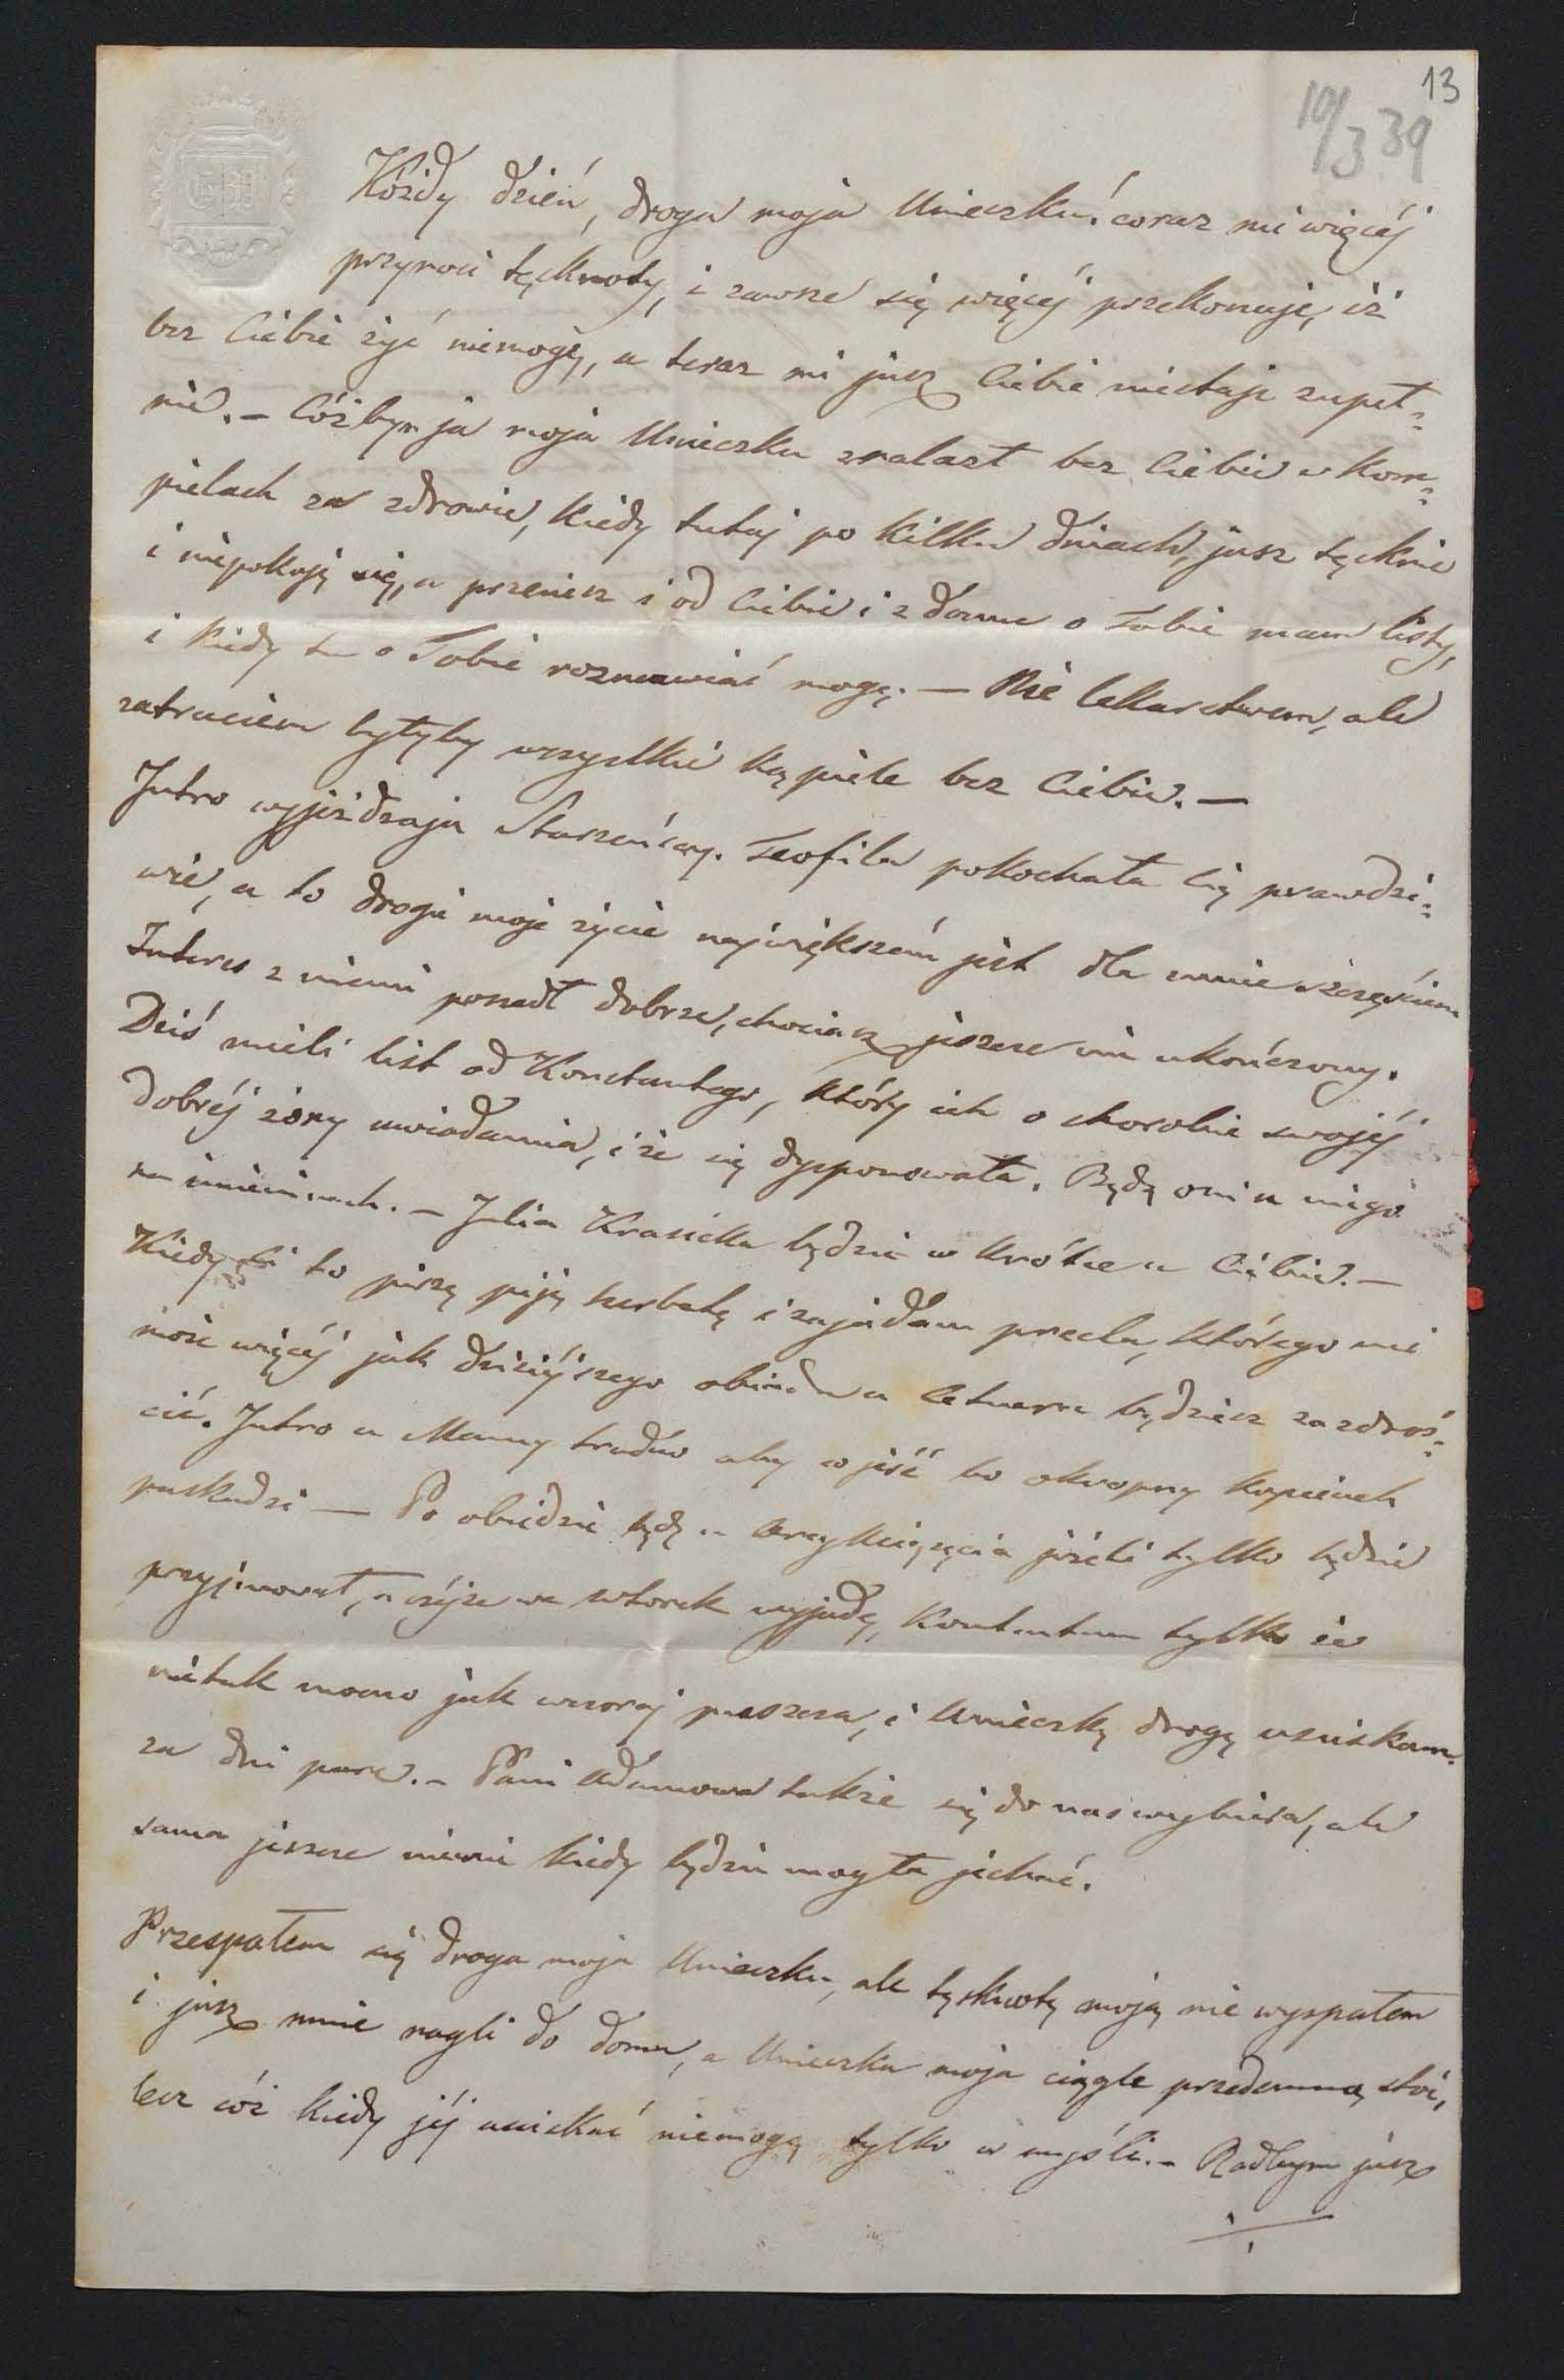 13
10/3 39
Kóżdy dzień, droga moja Unieczku! coraz mi więcéj
przynosi tęcknoty, i zawsze się więcéj przekonuję, iż
bez Ciebie żyć niemogę, a teraz mi jusz Ciebie niestaje zupeł=
nie. – Cóżbym ja moja Unieczku znalazł bez Ciebie w Kom=
pielach za zdrowie, kiedy tutaj po kilku dniach, jusz tęcknie
i niepokoję się, a przeciesz i od Ciebie i z domu o Tobie mam listy,
i kiedy tu o Tobie rozmawiać mogę. — Nie lekarstwem, ale
zatruciem byłyby wszystkie kąpiele bez Ciebie. —
Jutro wyjeżdzają Starzeńscy. Teofila pokochała Cię prawdzi=
wie, a to drogie moje życie największém jest dla mnie szczęściem
Interes z niemi poszedł dobrze, chociasz jeszcze nie ukończony.
Dziś mieli list od Konstantego, który ich o chorobie swojéj
dobréj żony uwiadamia, i że się dysponowała. Będą oni u niego
na imieninach. – Julia Krasicka będzie w krótce u Ciebie. —
Kiedy Ci to piszę piję herbatę i zajadam precla, którego mi
może więcéj jak dzisiéjszego obiadu u Cetnera będziesz zazdroś=
cić. Jutro u Mamy trudno aby co jeść bo okropny kapciuch
paskudzi — Po obiedzie będę u Arcyksięcia jeżeli tylko będzie
przyjmował, a może we wtorek wyjadę, Kontentem tylko że
nietak mocno jak wczoraj puszcza, i Unieczkę drogę uściskam
za dni parę. – Pani Adamowa także się do nas wybiera, ale
sama jeszcze niewie kiedy będzie mogła jechać.
Przespałem się droga moja Unieczku, ale tęsknotę moją nie wyspałem
i jusz mnie nagli do domu, a Unieczka moja ciągle przedemną stoi,
lecz cóż kiedy jéj uściskać niemogę tylko w myśli. – Radbym jusz